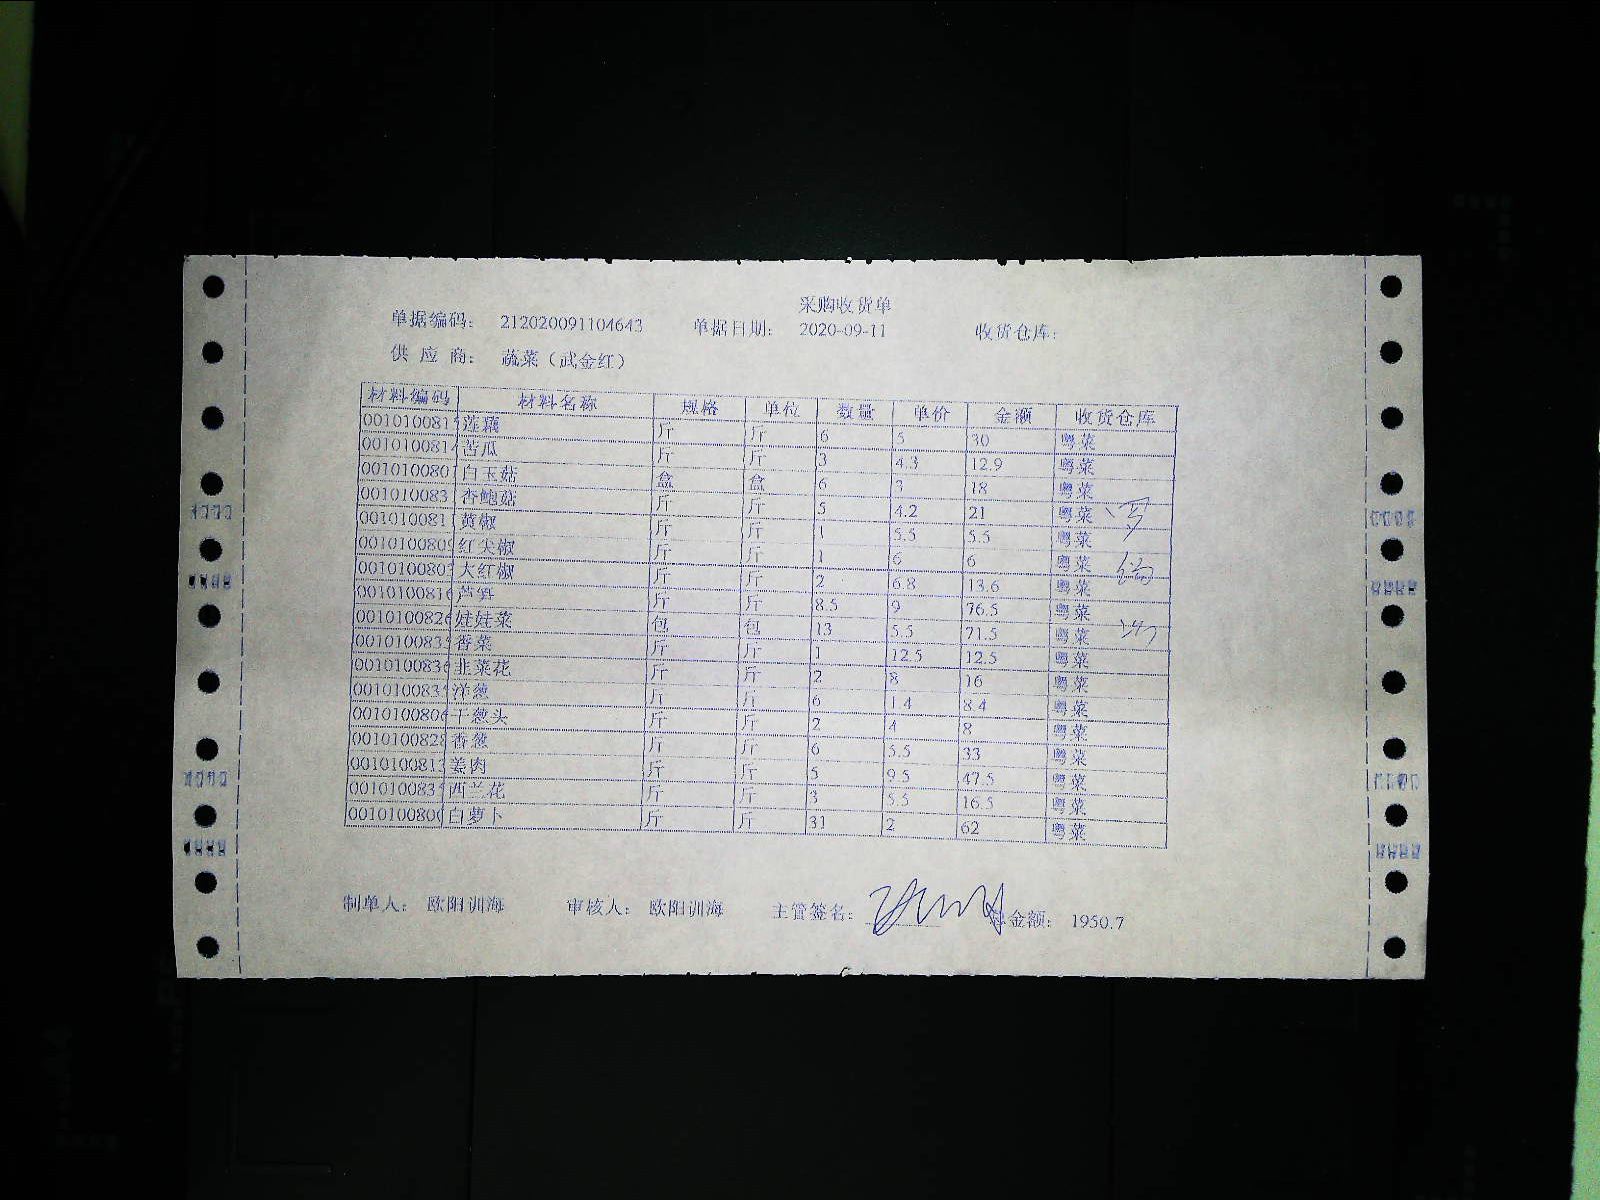 采购收货单
单据编码: 212020091104643 单据日期: 2020-09-11 收货仓库:
供 应 商: 蔬菜（武金红）
材料编码 材料名称 规格 单位 数量 单价 金额 收货仓库
001010081 莲藕 斤 斤 6 5 30 粤菜
001010081 苦瓜 斤 斤 3 4.3 12.9 粤菜
001010080 白玉菇 盒 盒 6 3 18 粤菜
001010083 杏鲍菇 斤 斤 5 4.2 21 粤菜
001010081 黄椒 斤 斤 1 5.5 5.5 粤菜
001010080 红尖椒 斤 斤 1 6 6 粤菜
001010080 大红椒 斤 斤 2 6.8 13.6 粤菜
001010081 芦笋 斤 斤 8.5 9 76.5 粤菜
001010082 娃娃菜 包 包 13 5.5 71.5 粤菜
001010083 香菜 斤 斤 1 12.5 12.5 粤菜
001010083 韭菜花 斤 斤 2 8 16 粤菜
001010083 洋葱 斤 斤 6 1.4 8.4 粤菜
001010080 干葱头 斤 斤 2 4 8 粤菜
001010082 香葱 斤 斤 6 5.5 33 粤菜
001010081 姜肉 斤 斤 5 9.5 47.5 粤菜
001010083 西兰花 斤 斤 3 5.5 16.5 粤菜
001010080 白萝卜 斤 斤 31 2 62 粤菜
制单人: 欧阳训海 审核人: 欧阳训海 主管签名: 金额: 1950.7